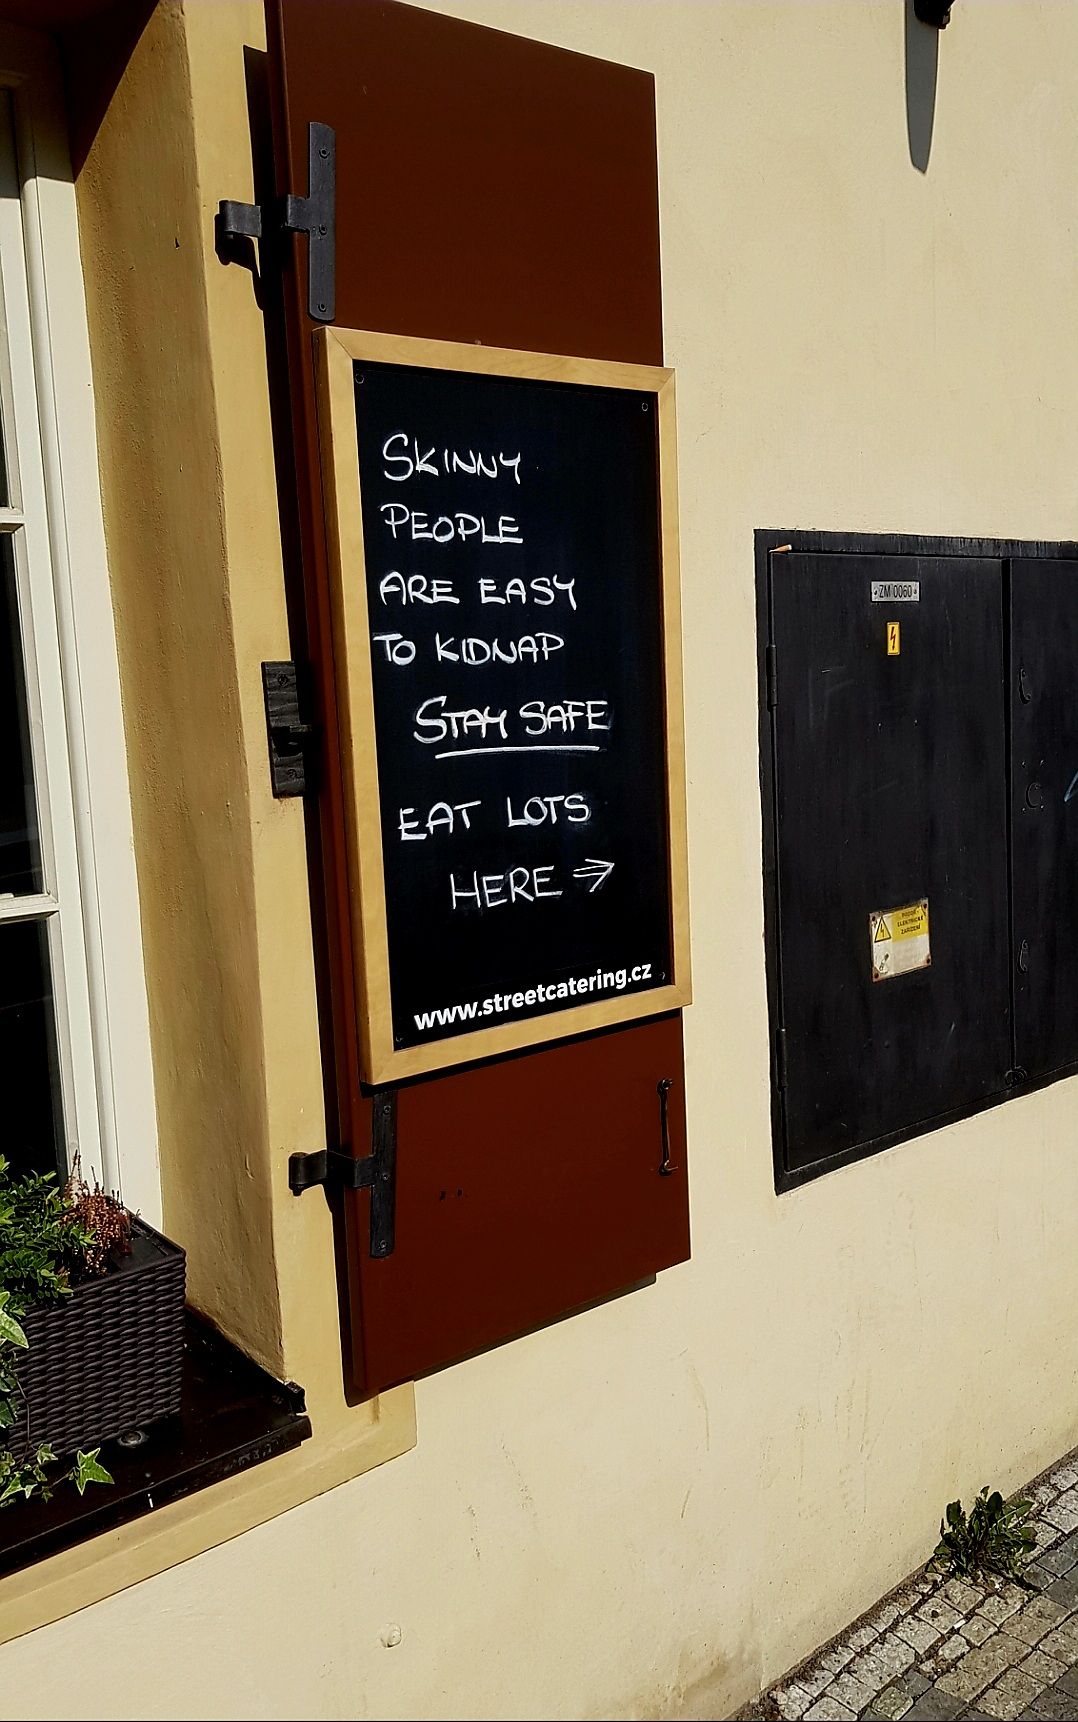 SKINNY
PEOPLE
ARE EASY
TO KIDNAP
STAY SAFE
EAT LOTS
HERE →
www.streetcatering.cz
ZM 0060
POZOR
ELEKTRICKÉ
ZAŘÍZENÍ